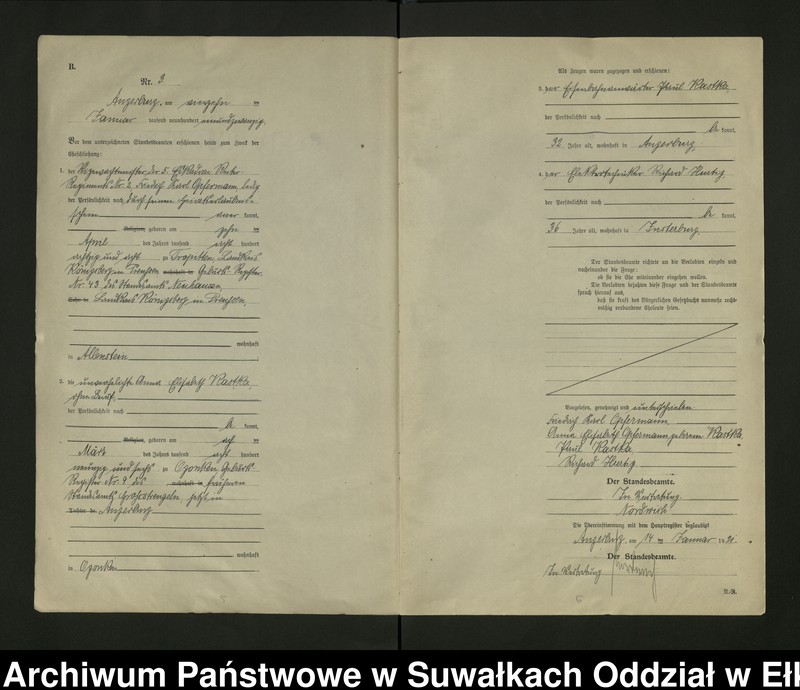 B.
Nr. 3
Angerburg, am vierzehn ten
Januar tausend neunhundert einundzwanzig.
Vor dem unterzeichneten Standesbeamten erschienen heute zum Zweck der
Eheschließung:
1. der Wagenwachtmeister der 5. Eskadron Reiter
Regiments Nr. 2 Friedrich Karl Opfermann, ledig
der Persönlichkeit nach durch seinen Heiratserlaubnis
schein aner kannt,
Religion, geboren am zehn ten
April des Jahres tausend acht hundert
achtzig und acht zu Landkreis
Königsberg in Preußen wohnhaft in Geburts Register
Nr. 43 des Standesamts Neuhausen,
Landkreis Königsberg in Preußen,
wohnhaft
in Allenstein
2. die unverehelichte Anna Elisabeth Kastka,
ohne Beruf,
der Persönlichkeit nach
be kannt,
Religion, geboren am ten
März des Jahres tausend acht hundert
neunzig und sechs zu Ogonken Geburts
Register Nr. 9 des wohnhaft in früheren
Standesamts Großstrengeln jetzt in
Tochter de Angerburg
wohnhaft
in Ogonken
Als Zeugen waren zugezogen und erschienen:
3. der Eisenbahnanwärter Paul Kastka
der Persönlichkeit nach
be kannt,
32 Jahre alt, wohnhaft in Angerburg
4. der Elektrotechniker Richard Hertig
der Persönlichkeit nach
be kannt,
36 Jahre alt, wohnhaft in Insterburg.
Der Standesbeamte richtete an die Verlobten einzeln und
nacheinander die Frage:
ob sie die Ehe miteinander eingehen wollen.
Die Verlobten bejahten diese Frage und der Standesbeamte
sprach hierauf aus,
daß sie kraft des Bürgerlichen Gesetzbuchs nunmehr recht-
mäßig verbundene Eheleute seien.
Vorgelesen, genehmigt und unterschrieben
Friedrich Karl Opfermann
Anna Elisabeth Opfermann geborene Kastka
Paul Kastka
Richard Hertig
Der Standesbeamte.
In Vertretung.
Die Übereinstimmung mit dem Hauptregister beglaubigt
Angerburg, am 14 ten Januar 1921
Der Standesbeamte.
In Vertretung
Archiwum Państwowe w Suwałkach Oddział w Ełk